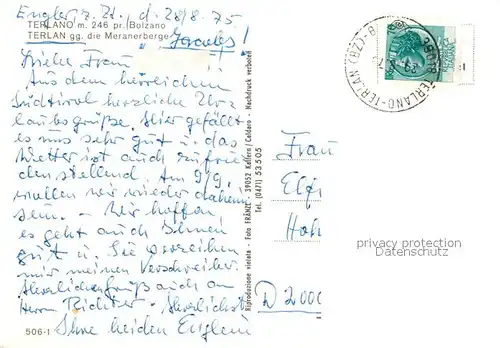 Engler z. Zt. / d. 28/8. 75
TERLANO m. 246 pr. Bolzano
TERLAN gg. die Meranerberge
Liebe Frau
Aus dem herrlichen
Südtirol herzliche Ur-
laubsgrüße. Hier gefällt
es uns sehr gut u. das
Wetter ist auch zufrie
denstellend. Am 9/9.
wollen wir wieder daheim
sein. - Wir hoffen,
es geht auch Ihnen
gut u. Sie verzeihen
mir meinen Verschreiber.
Herzlichen Gruß auch an
Herrn Richter - Herzlichst
Ihre beiden Englers
506-1
Riproduzione vietata - Foto FRÄNZL - 39052 Kaltern/Caldaro - Nachdruck verboten
Tel. (0471) 53505
39018 TERLANO-TERLAN (BZ)-B
Frau
Elf
Hah
D 2000
privacy protection
Datenschutz